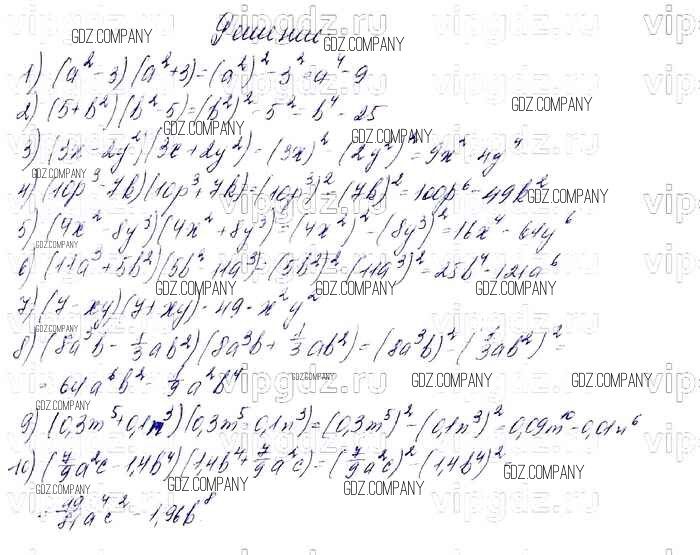 Решение
1) (a² - 3)(a² + 3) = (a²)² - 3² = a⁴ - 9
2) (5 + b²)(b² - 5) = (b²)² - 5² = b⁴ - 25
3) (3x - 2y²)(3x + 2y²) = (3x)² - (2y²)² = 9x² - 4y⁴
4) (10p³ - 7b)(10p³ + 7b) = (10p³)² - (7b)² = 100p⁶ - 49b²
5) (4x² - 8y³)(4x² + 8y³) = (4x²)² - (8y³)² = 16x⁴ - 64y⁶
6) (11a³ + 5b²)(5b² - 11a³) = (5b²)² - (11a³)² = 25b⁴ - 121a⁶
7) (7 - xy)(7 + xy) = 49 - x²y²
8) (8a³b - 1/3 ab²)(8a³b + 1/3 ab²) = (8a³b)² - (1/3 ab²)² =
= 64a⁶b² - 1/9 a²b⁴
9) (0,3m⁵ + 0,1n³)(0,3m⁵ - 0,1n³) = (0,3m⁵)² - (0,1n³)² = 0,09m¹⁰ - 0,01n⁶
10) (7/9 a²c - 1,4b⁴)(1,4b⁴ + 7/9 a²c) = (7/9 a²c)² - (1,4b⁴)² =
= 49/81 a⁴c² - 1,96b⁸
GDZ.COMPANY
vipgdz.ru